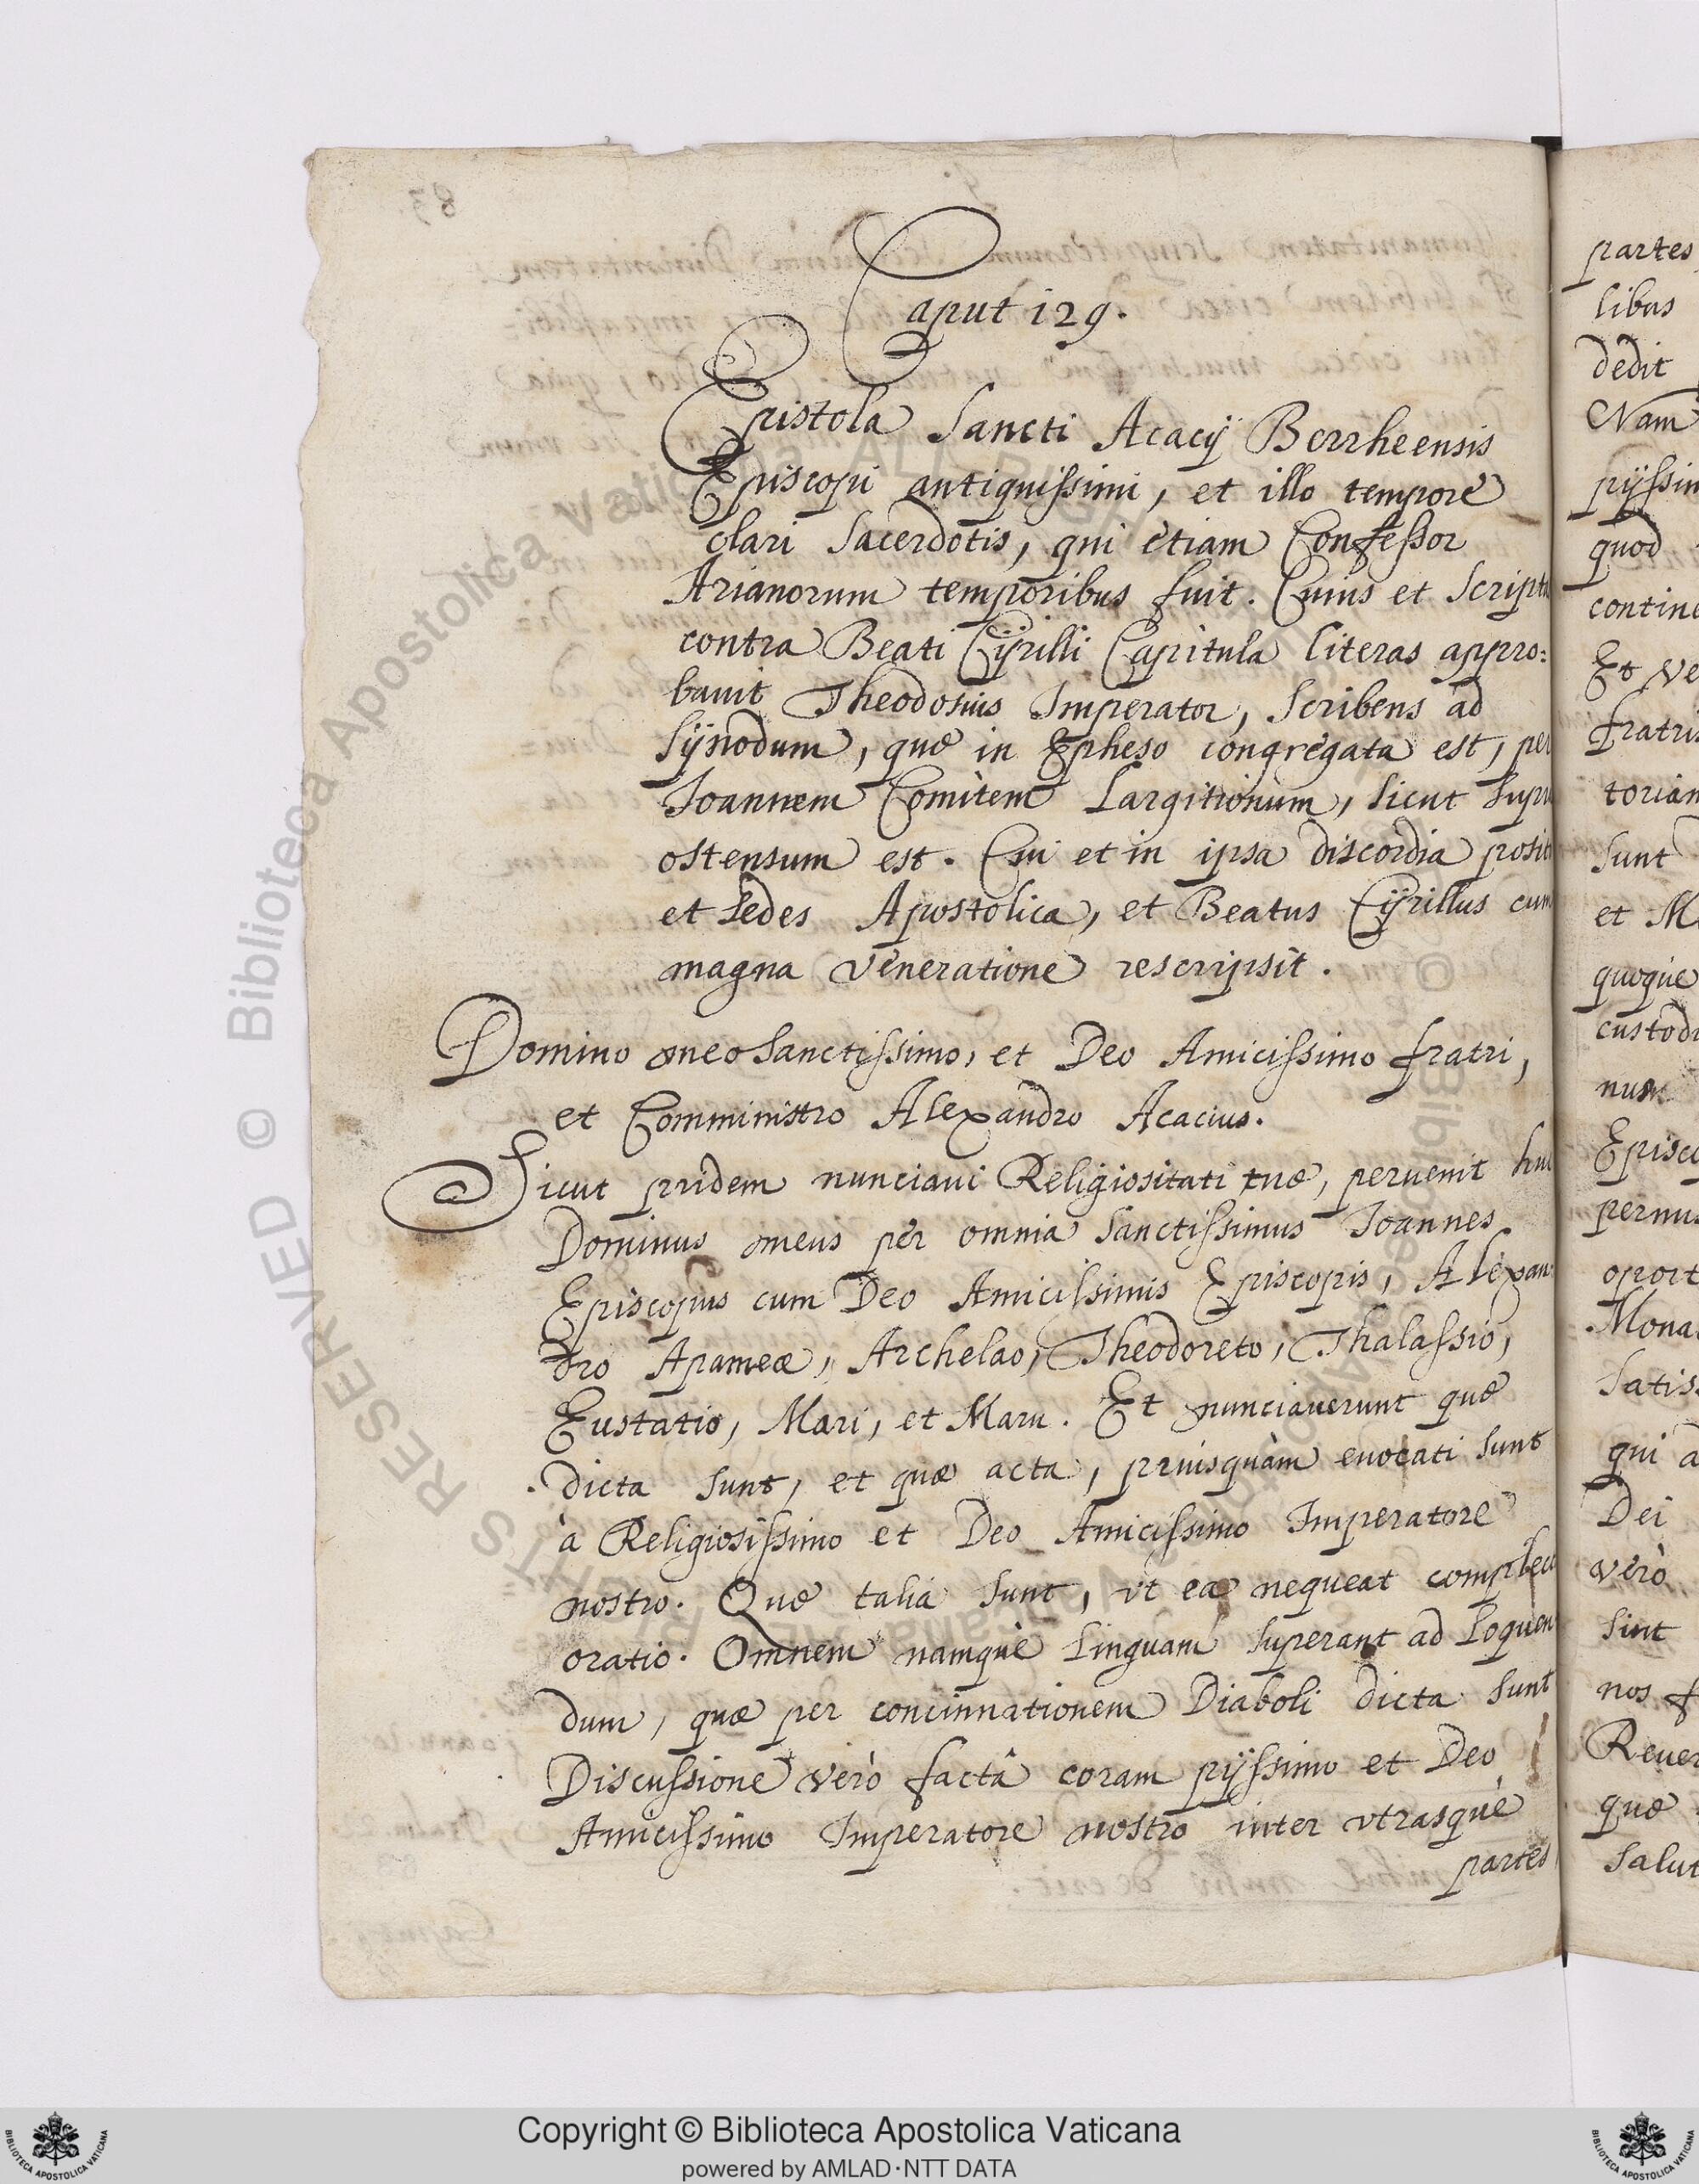 Caput 129.
Epistola Sancti Acacij Berrheensis
Episcopi antiquissimi, et illo tempore
clari Sacerdotis, qui etiam Confessor
Arianorum temporibus fuit. Cuius et Script
contra Beati Cÿrilli Capitula literas appro:
bauit Theodosius Imperator, Scribens ad
Sÿnodum, quæ in Epheso congregata est, per
Joannem Comitem Largitionum, Sicut Supr
ostensum est. Cui et in ipsa discordia posit
et Sedes Apostolica, et Beatus Cÿrillus cum
magna veneratione rescripsit.
Domino meo Sanctissimo, et Deo Amicissimo fratri,
et Comministro Alexandro Acacius.
Sicut pridem nunciaui Religiositati tuæ, peruenit hu
Dominus meus per omnia Sanctissimus Joannes
Episcopus cum Deo Amicissimis Episcopis, Alexan
dro Apameæ, Archelao, Theodoreto, Thalassio,
Eustatio, Mari, et Maru. Et nunciauerunt quæ
dicta sunt, et quæ acta, priusquàm euocati sunt
à Religiosissimo et Deo Amicissimo Imperatore
nostro. Quæ talia sunt, vt ea nequeat complec
oratio. Omnem namque Linguam Superant ad Loquen
dum, quæ per concinnationem Diaboli dicta sunt
Discussione verò factâ coram pijssimo et Deo
Amicissimo Imperatore nostro inter vtrasque
partes
partes
libus
dedit
Nam
pijssim
quod
contine
Et ve
fratris
torian
sunt
et M
quoque
custodi
Episco
permu
oport
Mona
Satis
qui a
Dei
verò
Sint
nos f
Reuer
quæ
Salut
83
© Biblioteca Apostolica Vaticana ALL RIGHTS RESERVED
Copyright © Biblioteca Apostolica Vaticana
powered by AMLAD·NTT DATA
BIBLIOTECA APOSTOLICA VATICANA
BIBLIOTECA APOSTOLICA VATICANA